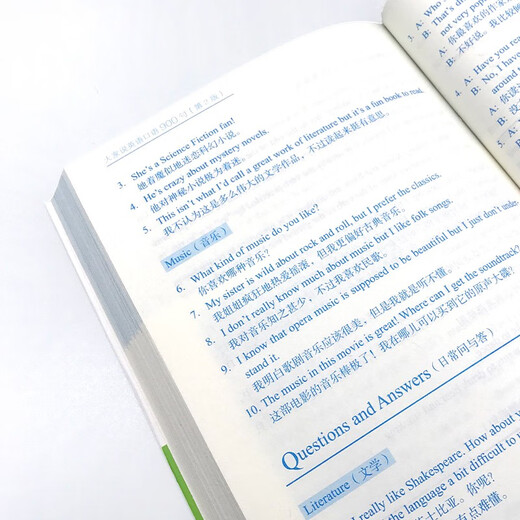 大家说英语口语900句（第2版）
3. She's a Science Fiction fan!
她着魔似地迷恋科幻小说。
4. He's crazy about mystery novels.
他对神秘小说极为着迷。
5. This isn't what I'd call a great work of literature but it's a fun book to read.
我不认为这是多么伟大的文学作品，不过读起来挺有意思。
Music（音乐）
6. What kind of music do you like?
你喜欢哪种音乐？
7. My sister is wild about rock and roll, but I prefer the classics.
我姐姐疯狂地热爱摇滚，但我更偏好古典音乐。
8. I don't really know much about music but I like folk songs.
我对音乐知之甚少，不过我喜欢民歌。
9. I know that opera music is supposed to be beautiful but I just don't
stand it.
我明白歌剧音乐应该很美，但是我就是听不懂。
10. The music in this movie is great! Where can I get the soundtrack?
这部电影的音乐棒极了！我在哪儿可以买到它的原声大碟？
Questions and Answers（日常问与答）
Literature（文学）
I really like Shakespeare. How about you
the language a bit difficult to
士比亚。你呢？
有点难懂。
A: Who
B: That's
not very popu
A: 你最喜欢的作家
B: 不好说。我比较
3. A: Have you rea
B: No, I have
around to
A: 你读
B: 没
4. A:
B:
A:
B: